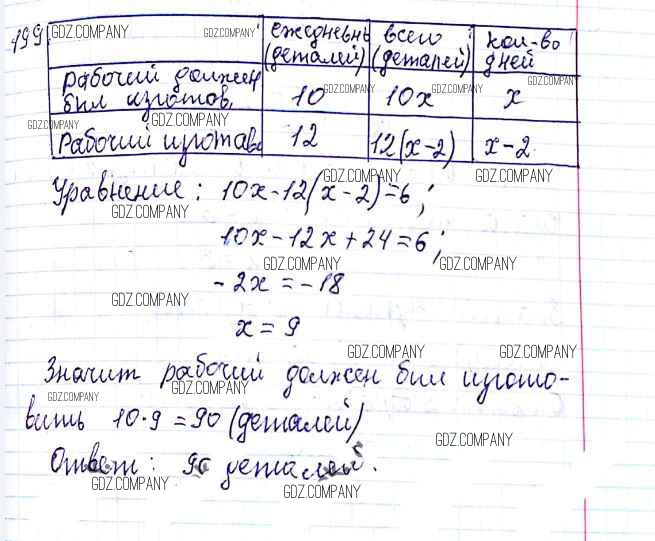 199 GDZ.COMPANY GDZ.COMPANY ежедневн (деталей) всего (деталей) кол-во дней
рабочий должен был изготов. 10 GDZ.COMPANY 10x GDZ.COMPANY x GDZ.COMPANY
GDZ.COMPANY GDZ.COMPANY
Рабочий изготав. 12 12(x-2) x-2
GDZ.COMPANY GDZ.COMPANY
Уравнение: 10x-12(x-2)=6;
GDZ.COMPANY
10x-12x+24=6;
GDZ.COMPANY GDZ.COMPANY GDZ.COMPANY
-2x=-18
GDZ.COMPANY
x=9
GDZ.COMPANY GDZ.COMPANY
Значит рабочий должен был изгото-
GDZ.COMPANY GDZ.COMPANY
вить 10·9=90 (деталей)
GDZ.COMPANY
Ответ: 90 деталей.
GDZ.COMPANY GDZ.COMPANY